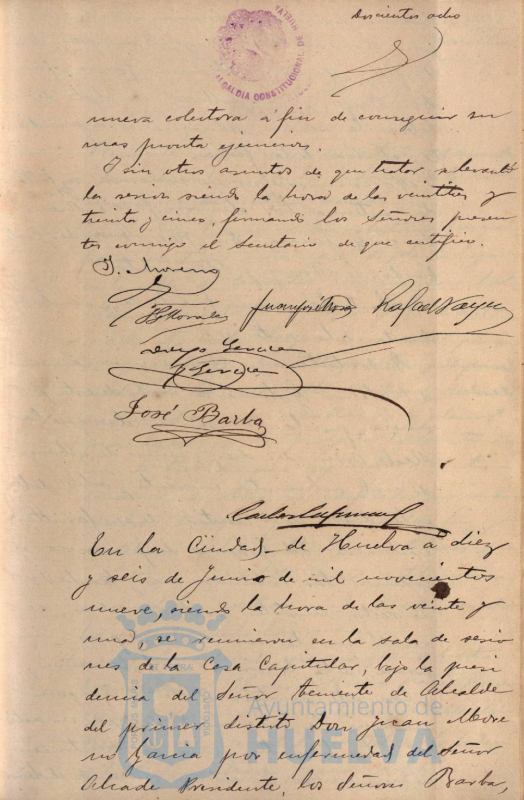 Doscientos ocho
ALCALDIA CONSTITUCIONAL DE HUELVA
nueva colectora á fin de conseguir su
mas pronta ejecucion.
Y sin otros asuntos de que tratar se levantó
la sesion siendo la hora de las veintitres y
treinta y cinco, firmando los Señores presen
tes conmigo el Secretario de que certifico.
J. Moreno
Morales
Diego Garcia
José Barba
En la Ciudad de Huelva a diez
y seis de Junio de mil novecientos
nueve, siendo la hora de las veinte y
una, se reunieron en la sala de sesio
nes de la Casa Capitular, bajo la presi
dencia del Señor teniente de Alcalde
del primer distrito Don Juan More
no Garcia por enfermedad del Señor
Alcade Presidente, los Señores Barba,
Ayuntamiento de
HUELVA